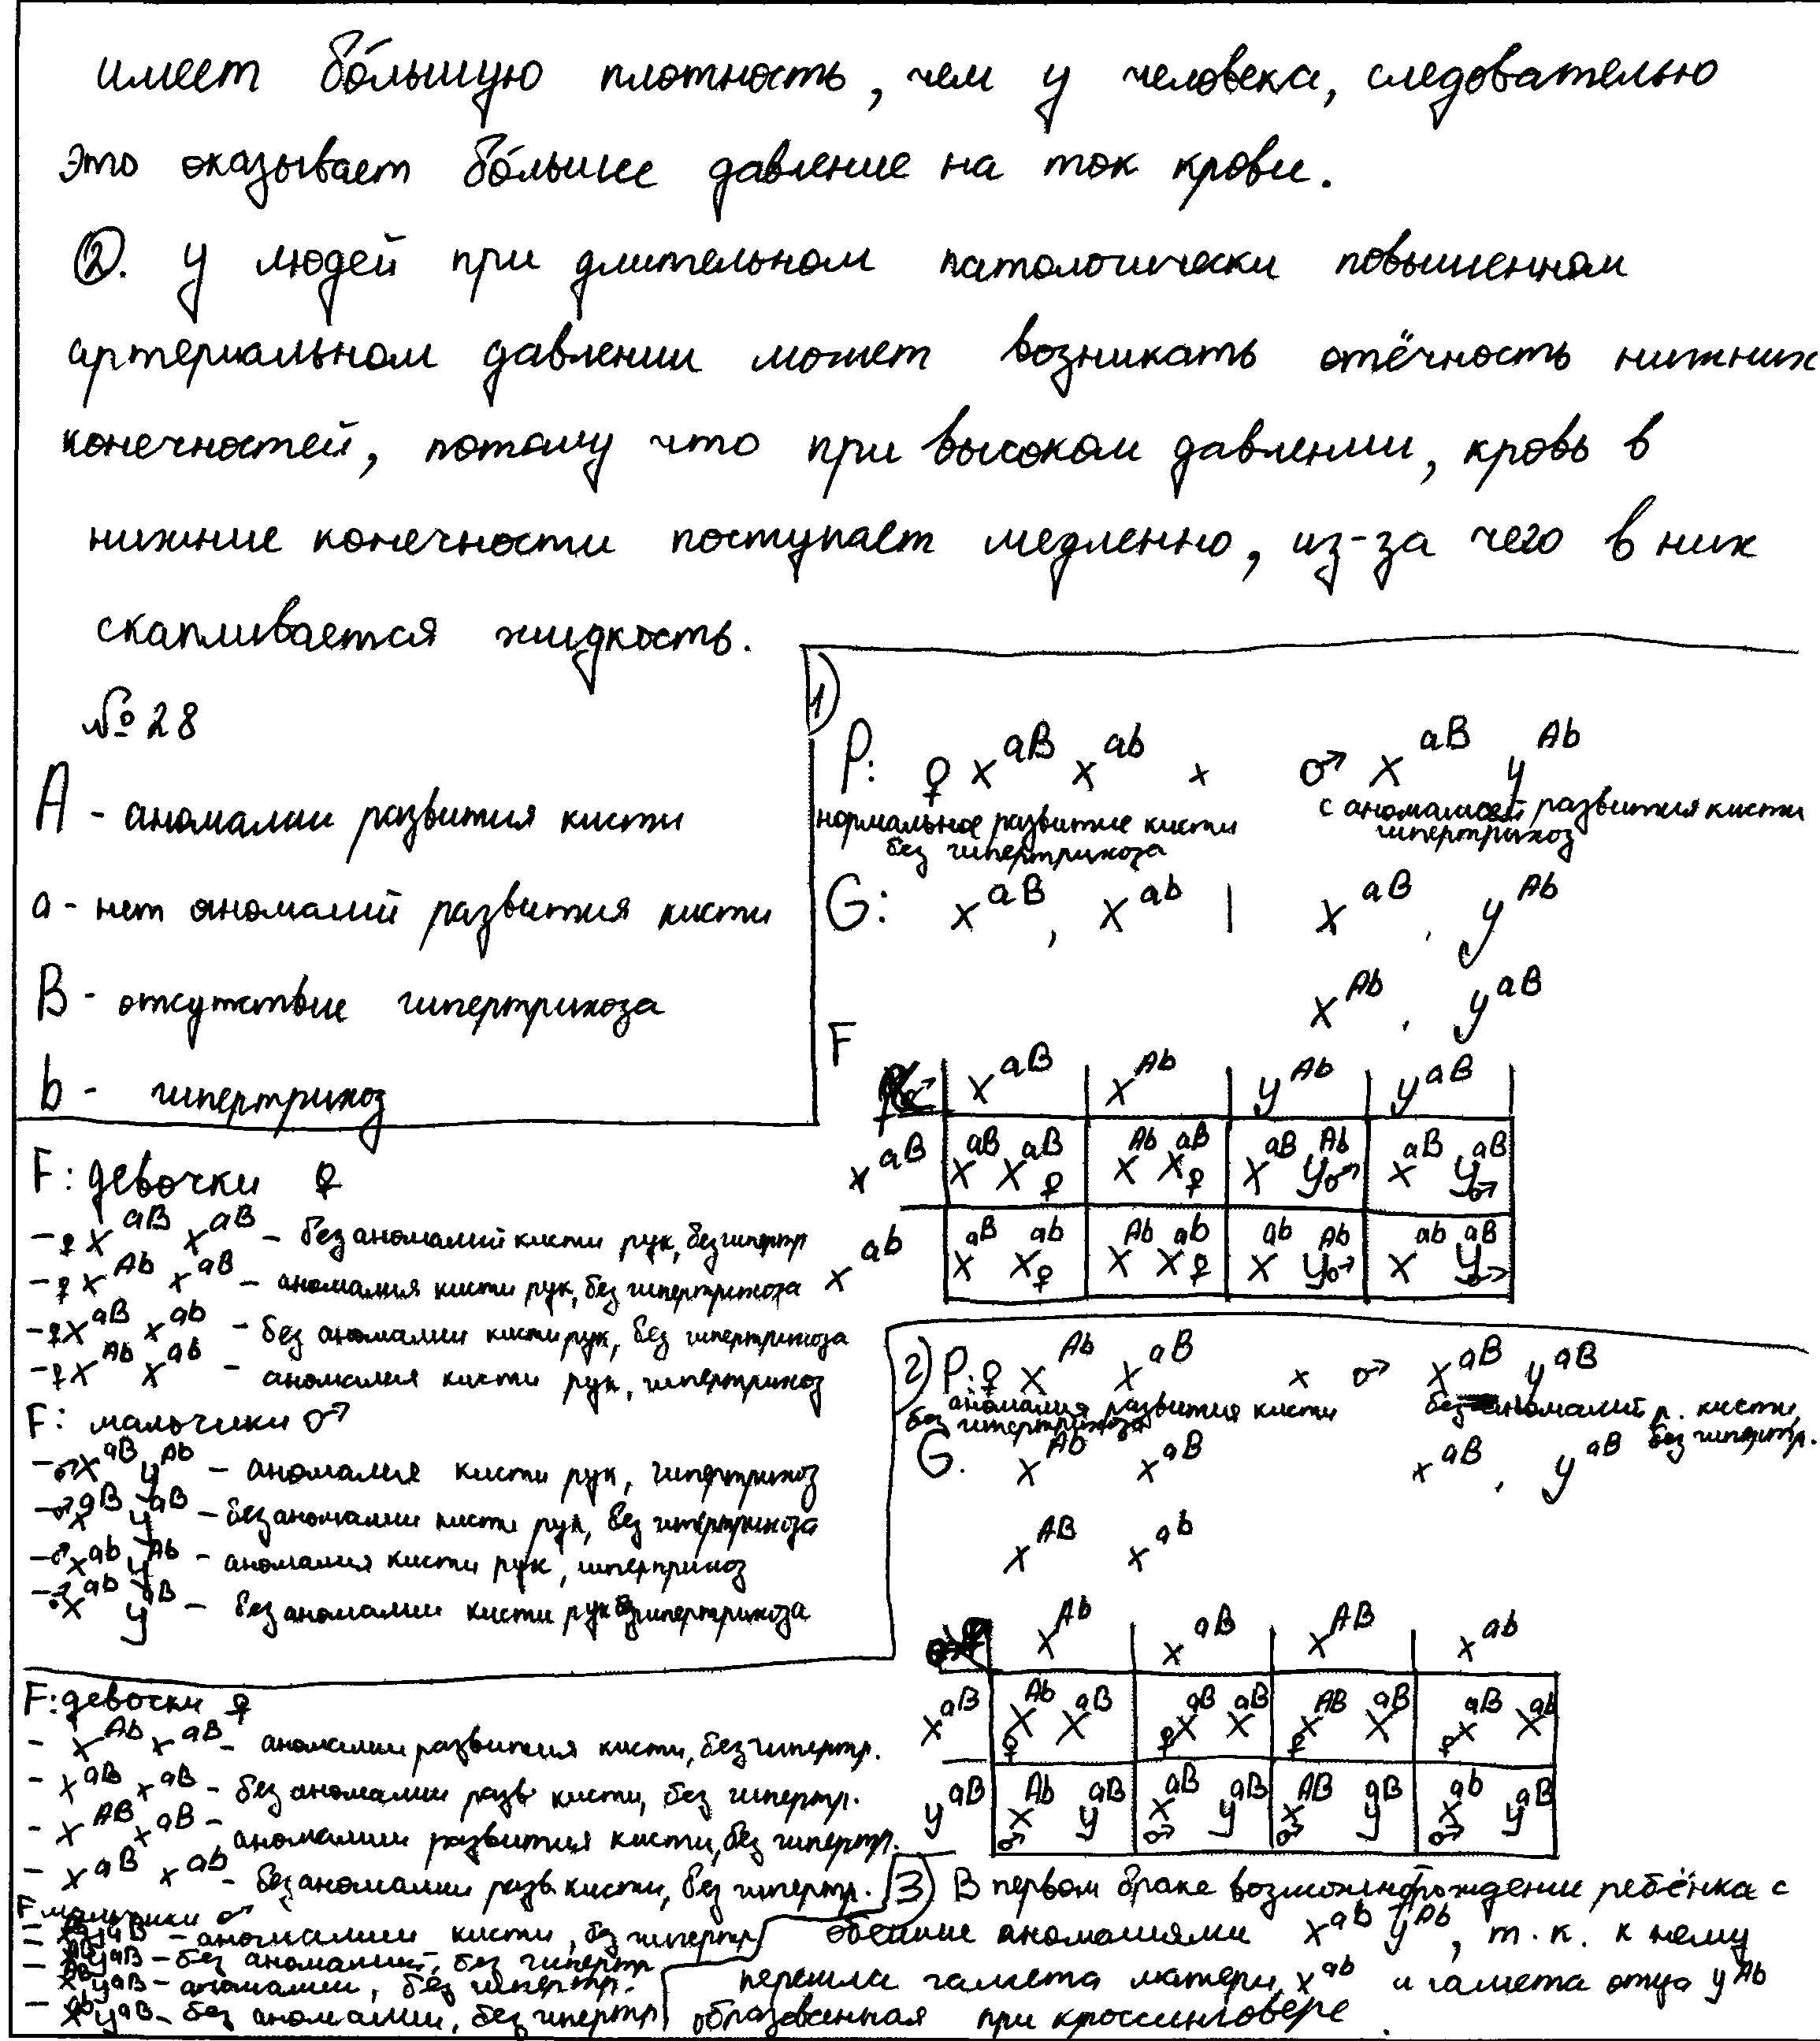 имеет бо́льшую плотность, чем у человека, следовательно
это оказывает бо́льшее давление на ток крови.
②. У людей при длительном патологически повышенном
артериальном давлении может возникать отёчность нижних
конечностей, потому что при высоком давлении, кровь в
нижние конечности поступает медленно, из-за чего в них
скапливается жидкость.
№ 28
A - аномалии развития кисти
a - нет аномалий развития кисти
B - отсутствие гипертрихоза
b - гипертрихоз
1)
P: ♀ X^aB X^ab x ♂ X^aB Y^Ab
нормальное развитие кисти без гипертрихоза
с аномалией развития кисти гипертрихоз
G: X^aB, X^ab | X^aB, Y^Ab
X^Ab, Y^aB
F
♂ X^aB X^Ab Y^Ab Y^aB
X^aB X^aB X^aB ♀ X^Ab X^aB ♀ X^aB Y^Ab ♂ X^aB Y^aB ♂
X^ab X^aB X^ab ♀ X^Ab X^ab ♀ X^ab Y^Ab ♂ X^ab Y^aB ♂
F: девочки ♀
- ♀ X^aB X^aB - без аномалий кисти рук, без гипертр
- ♀ X^Ab X^aB - аномалия кисти рук, без гипертрихоза
- ♀ X^aB X^ab - без аномалии кисти рук, без гипертрихоза
- ♀ X^Ab X^ab - аномалия кисти рук, гипертрихоз
F: мальчики ♂
- ♂ X^aB Y^Ab - аномалия кисти рук, гипертрихоз
- ♂ X^aB Y^aB - без аномалии кисти рук, без гипертрихоза
- ♂ X^ab Y^Ab - аномалия кисти рук, гипертрихоз
- ♂ X^ab Y^aB - без аномалии кисти рук гипертрихоза
2) P: ♀ X^Ab X^aB x ♂ X^aB Y^aB
аномалия развития кисти без гипертрихоза
без аномалий р. кисти, без гипертр.
G. X^Ab X^aB X^aB, Y^aB
X^AB X^ab
X^Ab X^aB X^AB X^ab
X^aB ♀ X^Ab X^aB ♀ X^aB X^aB ♀ X^AB X^aB ♀ X^aB X^ab
Y^aB ♂ X^Ab Y^aB ♂ X^aB Y^aB ♂ X^AB Y^aB ♂ X^ab Y^aB
F: девочки ♀
- X^Ab X^aB - аномалии развития кисти, без гипертр.
- X^aB X^aB - без аномалии разв кисти, без гипертр.
- X^AB X^aB - аномалии развития кисти, без гипертр.
- X^aB X^ab - без аномалии разв. кисти, без гипертр.
F мальчики ♂
- Y^aB - аномалии кисти, без гипертр
- Y^aB - без аномалий, без гипертр
- X^AB Y^aB - аномалии, без гипертр.
- X^ab Y^aB - без аномалии, без гипертр
3) В первом браке возможно рождении ребёнка с
обеими аномалиями X^ab Y^Ab, т.к. к нему
перешла гамета матери X^ab и гамета отца Y^Ab
образованная при кроссинговере.